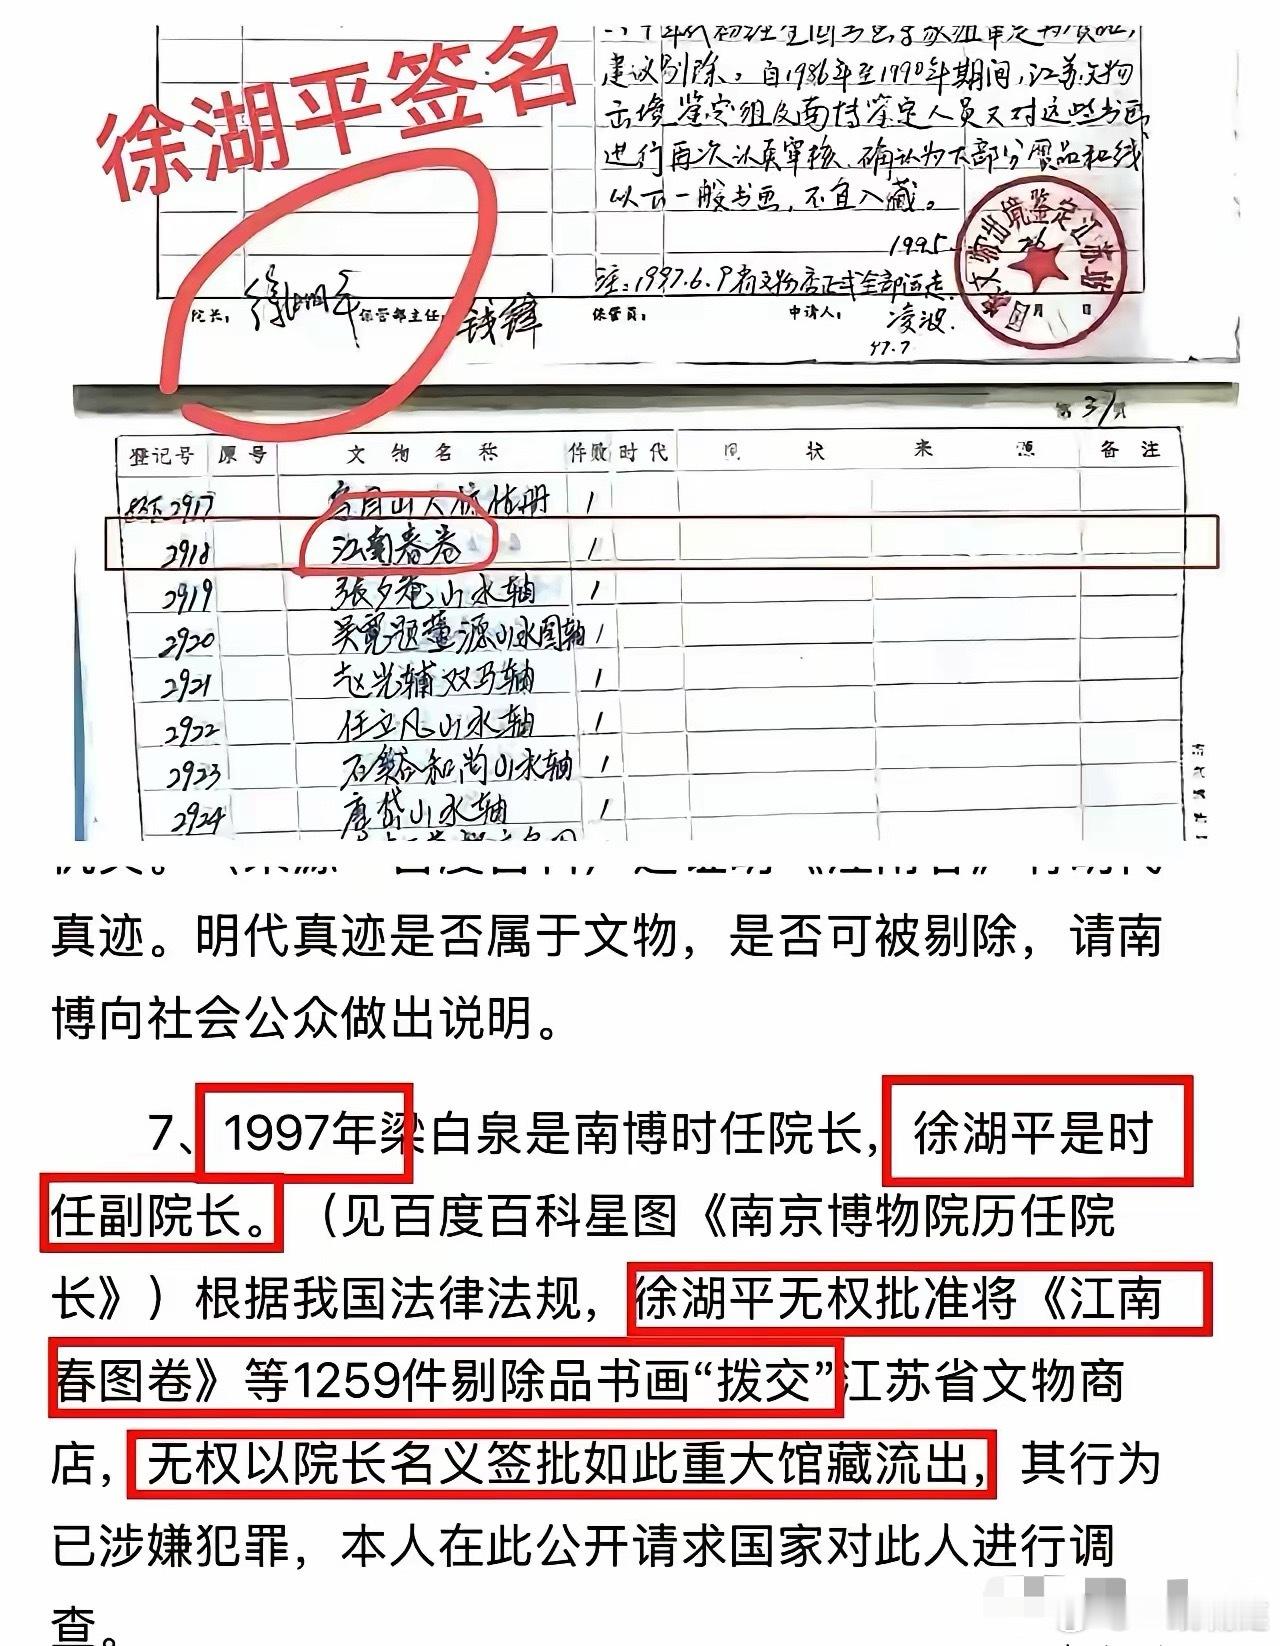 徐湖平签名
建议剔除。自1986年至1990年期间,江苏文物
出境鉴定组及南博鉴定人员又对这些书画
进行再次认真审核、确认为大部分赝品和线
以下一般书画,不宜入藏。
1995.
注:1997.6.9省文物店正式全部运走.
院长: 徐湖平 保管部主任: 钱锋 保管员: 申请人: 凌波.
97.7
第31页
登记号 原号 文物名称 件数 时代 现状 来源 备注
2917 1
2918 江南春卷 1
2919 张夕庵山水轴 1
2920 吴宽题董源山水图轴 1
2921 赵光辅双马轴 1
2922 任立凡山水轴 1
2923 石谿和尚山水轴 1
2924 唐岱山水轴 1
真迹。明代真迹是否属于文物,是否可被剔除,请南
博向社会公众做出说明。
7、1997年梁白泉是南博时任院长,徐湖平是时
任副院长。(见百度百科星图《南京博物院历任院
长》)根据我国法律法规,徐湖平无权批准将《江南
春图卷》等1259件剔除品书画“拨交”江苏省文物商
店,无权以院长名义签批如此重大馆藏流出,其行为
已涉嫌犯罪,本人在此公开请求国家对此人进行调
查。